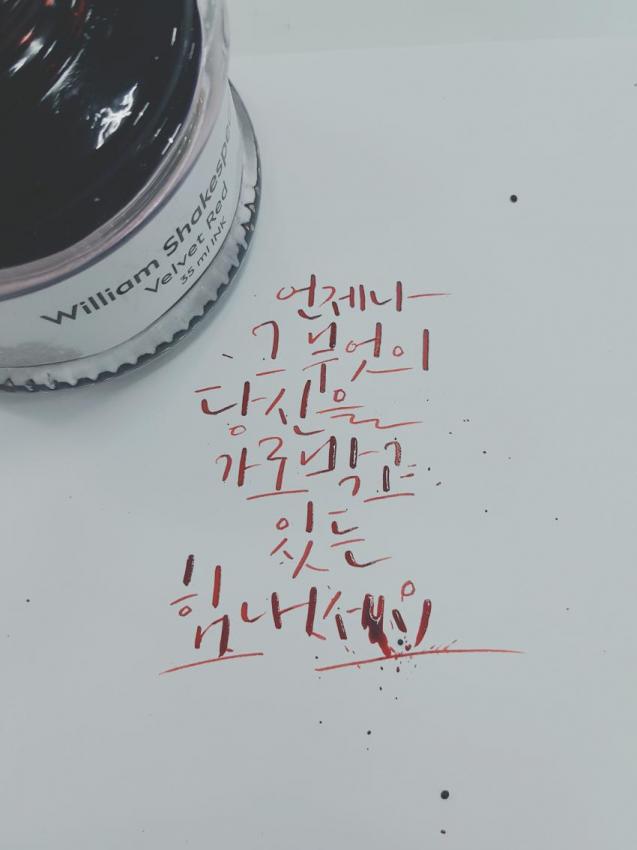 William Shakespe
Velvet Red
35 ml INK
언제나
그 무엇이
당신을
가로막고
있든
힘내세요